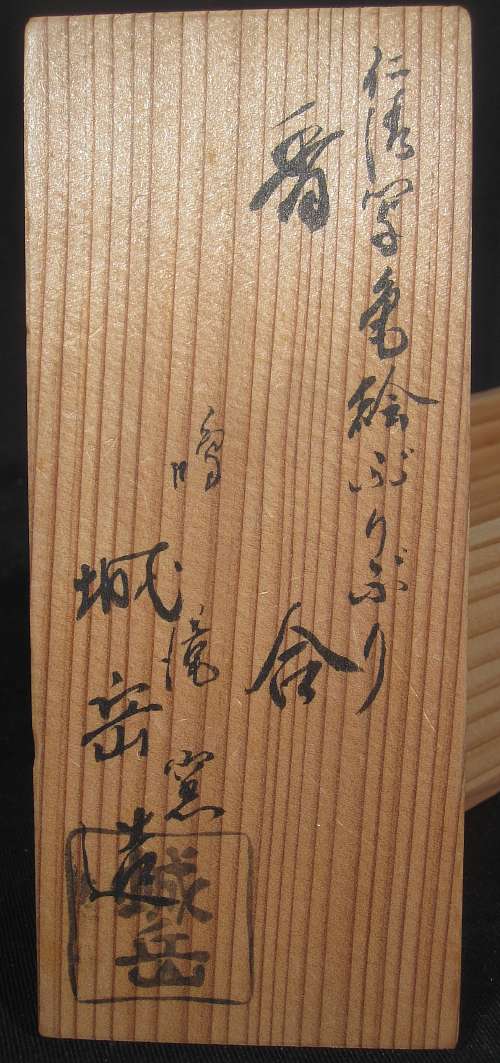 仁清写亀絵ぶりぶり
香合
鳴滝窯
城岳造
城岳